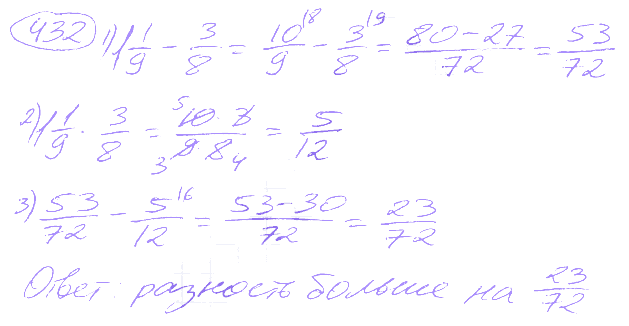 432 1) 1 1/9 - 3/8 = 10/9 ^18 - 3/8 ^19 = (80-27)/72 = 53/72
2) 1 1/9 · 3/8 = (10 · 3)/(9 · 8) = 5/12
3) 53/72 - 5/12 ^16 = (53-30)/72 = 23/72
Ответ: разность больше на 23/72